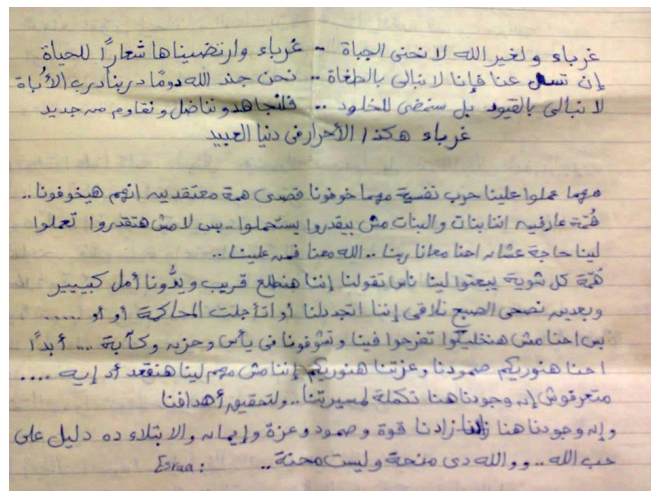 غرباء ولغير الله لا نحنى الجباة .. غرباء وارتضيناها شعارًا للحياة
إن تسل عنا فإنا لا نبالى بالطغاة .. نحن جند الله دومًا دربنا درب الأباة
لا نبالى بالقيود بل سنمضى للخلود .. فلنجاهد ونناضل ونقاوم من جديد
غرباء هكذا الأحرار فى دنيا العبيد
مهما عملوا علينا حرب نفسية مهما خوفونا قصدى همة معتقدين انهم هيخوفونا ..
هُمّة عارفين اننا بنات والبنات مش بيقدروا يستحملوا .. بس لا مش هتقدروا تعملوا
لينا حاجة عشان احنا معانا ربنا .. الله معنا فمن علينا ..
هُمّة كل شوية يبعتوا لينا ناس تقولنا إننا هنطلع قريب ويدُّونا أمل كبييير
وبعدين نصحى الصبح نلاقى إننا اتجدلنا أو اتأجلت المحاكمة أو أو .....
بس احنا مش هنخليكوا تفرحوا فينا وتشوفونا فى يأس وحزن وكآبة ... أبدًا
احنا هنوريكم صمودنا وعزتنا هنوريكم إننا مش مهم لينا هنقعد أد إيه ....
متعرفوش إن وجودنا هنا تكملة لمسيرتنا .. ولتحقيق أهدافنا
وإن وجودنا هنا زادنا قوة وصمود وعزة وإيمان والابتلاء ده دليل على
حب الله .. ووالله دى منحة وليست محنة .. Esraa :